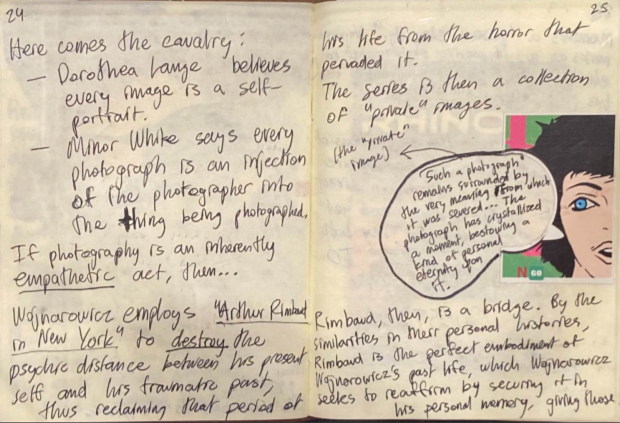 24
Here comes the cavalry:
— Dorothea Lange believes
every image is a self-
portrait.
— Minor White says every
photograph is an injection
of the photographer into
the thing being photographed.
If photography is an inherently
empathetic act, then...
Wojnarowicz employs "Arthur Rimbaud
in New York" to destroy the
psychic distance between his present
self and his traumatic past,
thus reclaiming that period of
25
his life from the horror that
pervaded it.
The series is then a collection
of "private" images.
[the "private"
image]
"Such a photograph"
remains surrounded by
the very meaning from which
it was severed... The
photograph has crystallized
a moment, bestowing a
kind of personal
eternity upon
it.
N GO
Rimbaud, then, is a bridge. By the
similarities in their personal histories,
Rimbaud is the perfect embodiment of
Wojnarowicz's past life, which Wojnarowicz
seeks to reaffirm by securing it in
his personal memory, giving those